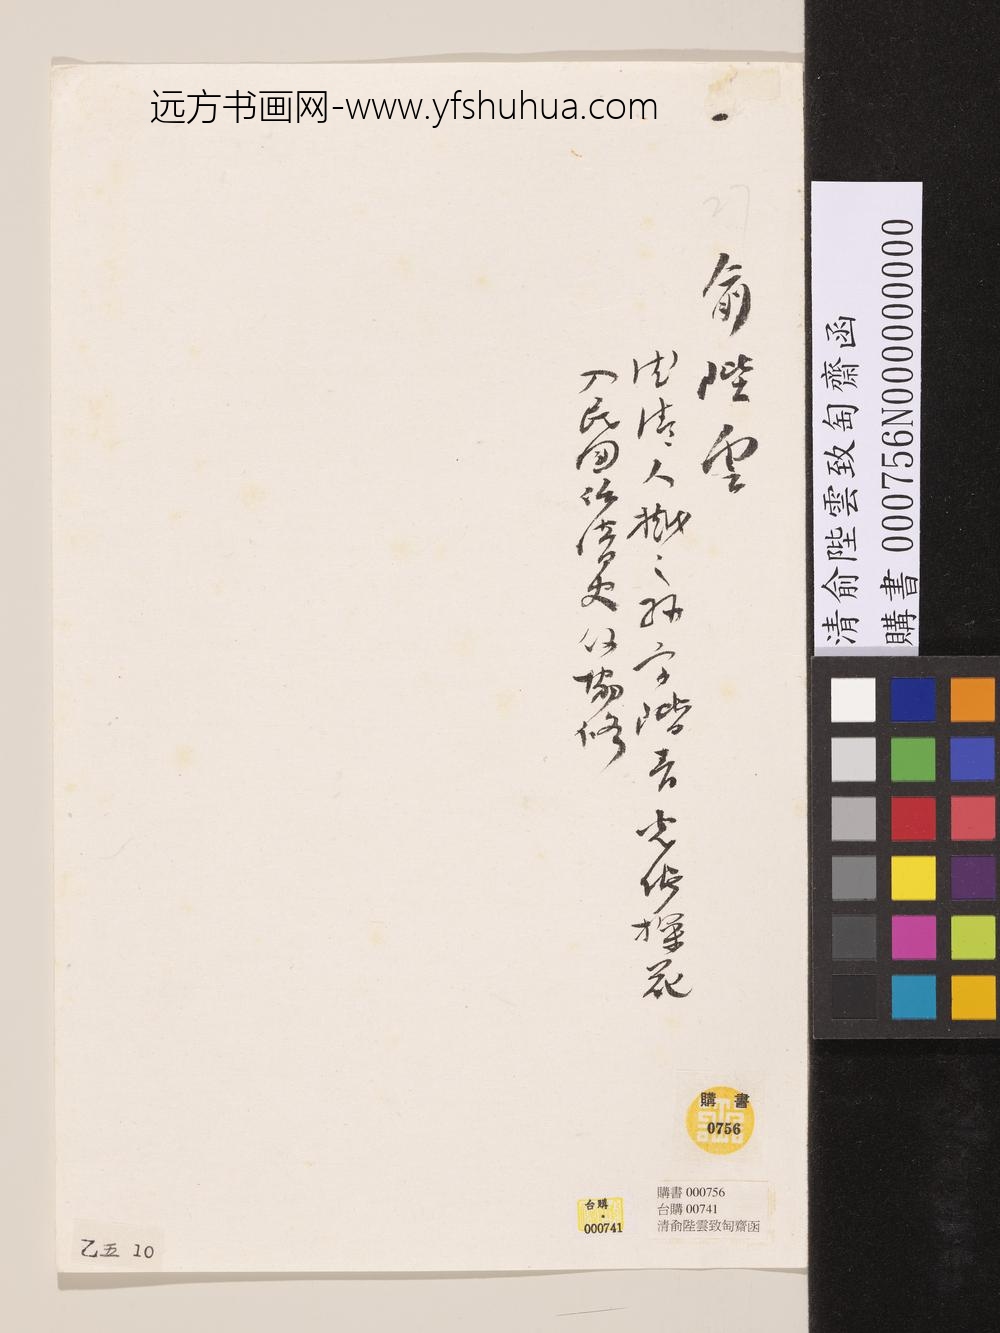 远方书画网-www.yfshuhua.com
27
俞陛雲
德清人樾之孫字階青光緒探花
入民國任清史館協修
購書
0756
台購
000741
購書 000756
台購 00741
清俞陛雲致匋齋函
乙五 10
清俞陛雲致匋齋函
購書 000756N000000000